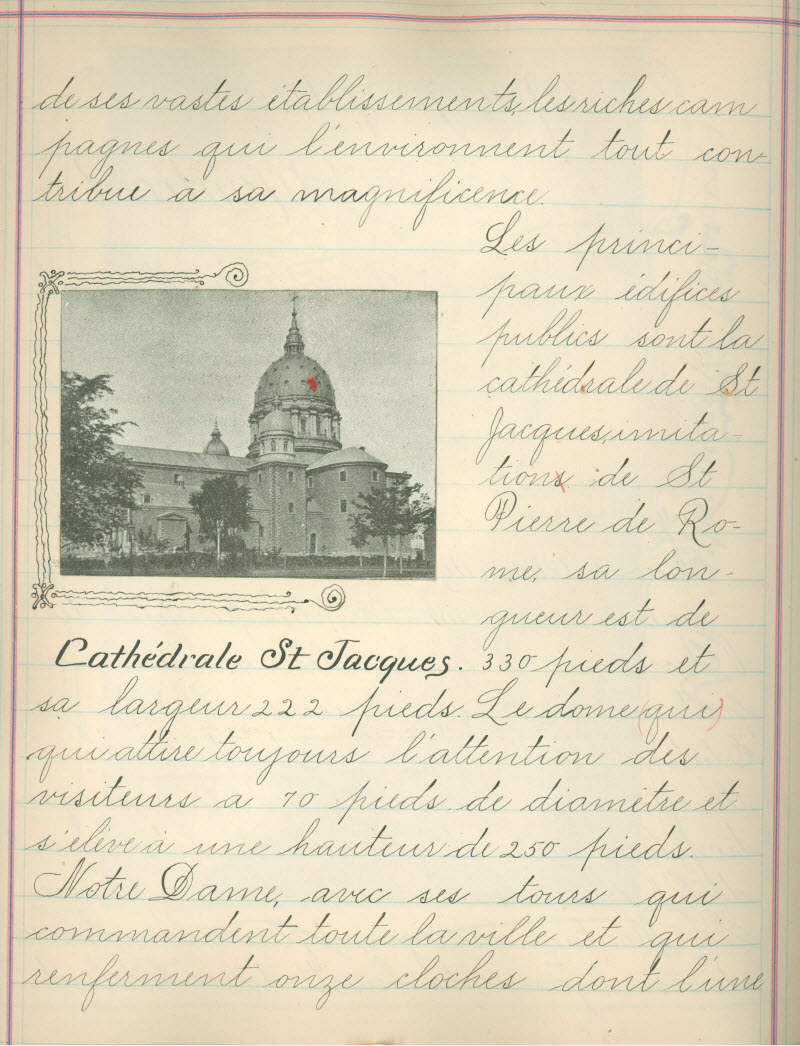 de ses vastes établissements, les riches cam
pagnes qui l'environnent tout con-
tribue à sa magnificence.
Les princi-
paux édifices
publics sont la
cathédrale de St
Jacques, imita-
tions de St
Pierre de Ro-
me, sa lon-
gueur est de
Cathédrale St Jacques. 330 pieds et
sa largeur 222 pieds. Le dome (qui)
qui attire toujours l'attention des
visiteurs a 70 pieds de diamètre et
s'élève à une hauteur de 250 pieds.
Notre Dame, avec ses tours qui
commandent toute la ville et qui
renferment onze cloches dont l'une